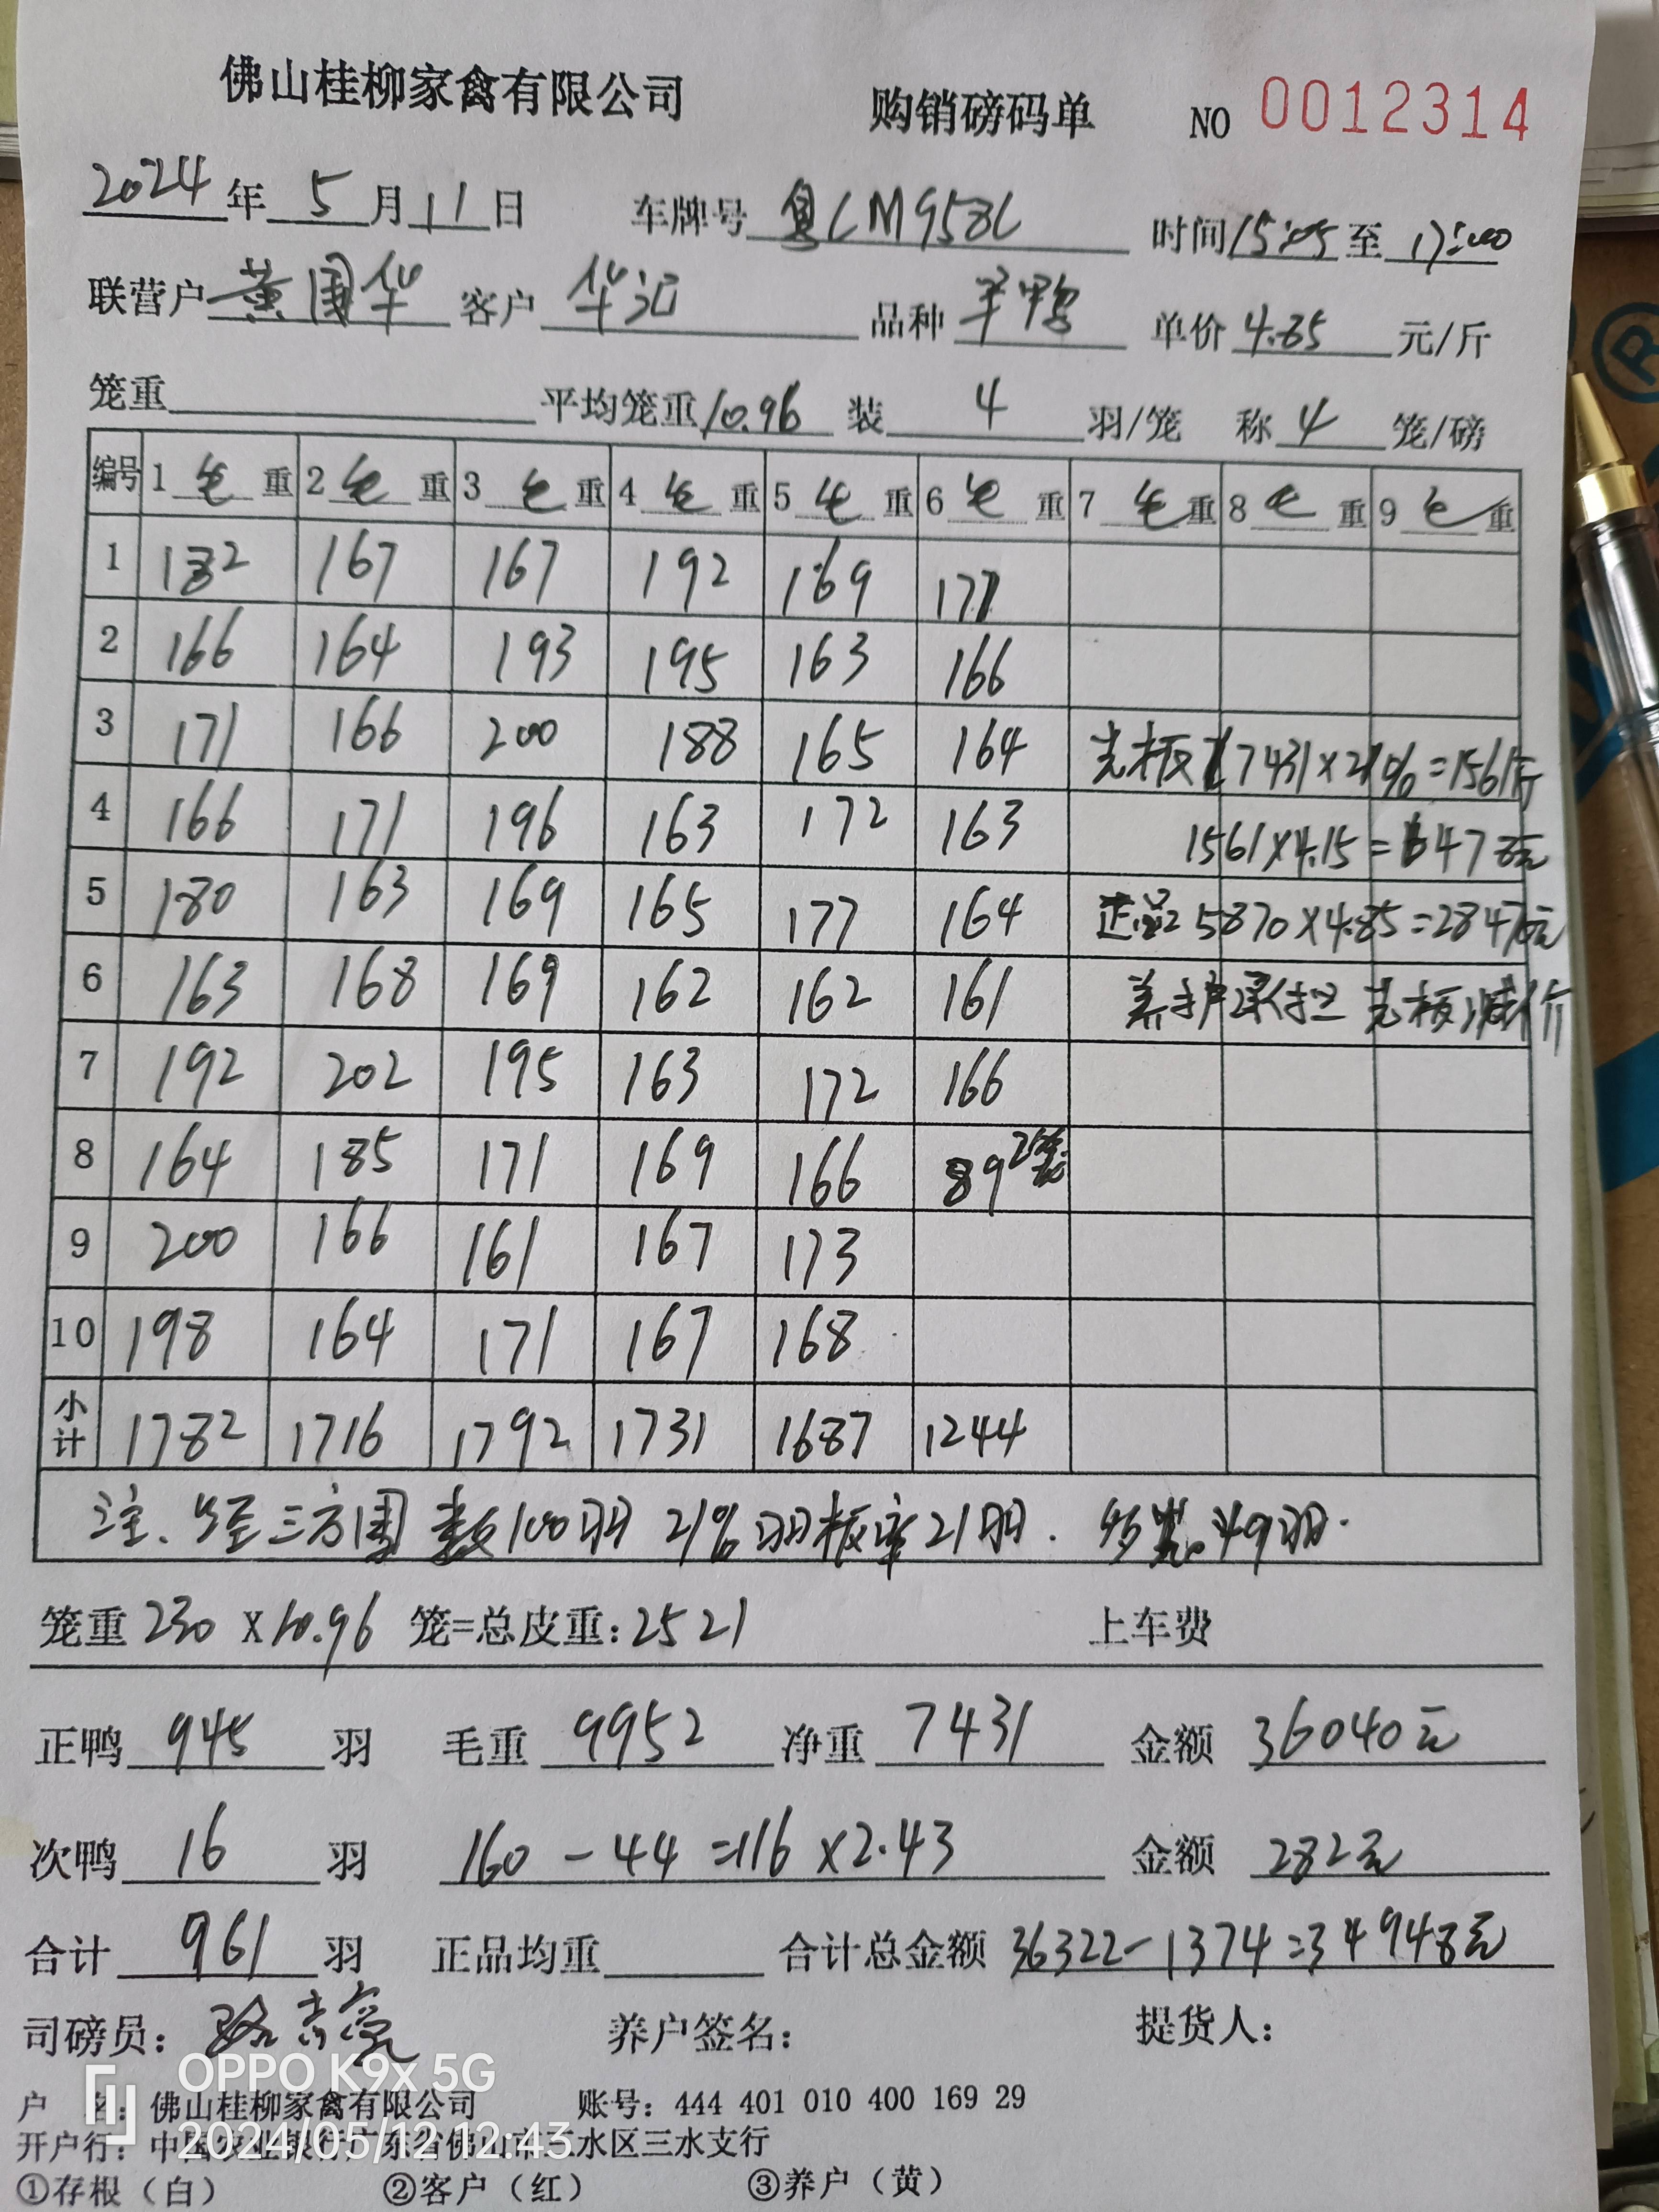 佛山桂柳家禽有限公司 购销磅码单 NO 0012314
2024年 5月11日 车牌号 粤 时间15:05至17:00
联营户 黄国华 客户 华记 品种 单价4.85元/斤
笼重 平均笼重10.96 装 4 羽/笼 称 4 笼/磅
编号 1毛重 2毛重 3毛重 4毛重 5毛重 6毛重 7毛重 8毛重 9毛重
1 182 167 167 192 169 171
2 166 164 193 195 163 166
3 171 166 200 188 165 164 7431×21%=1561斤
4 166 171 196 163 172 163 1561×4.15=6478元
5 180 163 169 165 177 164 正品 5870×4.85=28470元
6 163 168 169 162 162 161 养护承担 减价
7 192 202 195 163 172 166
8 164 185 171 169 166 89 2笼
9 200 166 161 167 173
10 198 164 171 167 168
小计 1782 1716 1792 1731 1687 1244
注、经三方围数100羽 21% 21羽. 49羽.
笼重230 X10.96 笼=总皮重:2521 上车费
正鸭 945 羽 毛重 9952 净重 7431 金额 36040元
次鸭 16 羽 160-44=116×2.43 金额 282元
合计 961 羽 正品均重 合计总金额 36322-1374=34948元
司磅员: 养户签名: 提货人:
OPPO K9x 5G
户 名: 佛山桂柳家禽有限公司 账号: 444 401 010 400 169 29
2024/05/12 12:43
开户行: 中国农业银行广东省佛山市三水区三水支行
①存根(白) ②客户(红) ③养户(黄)